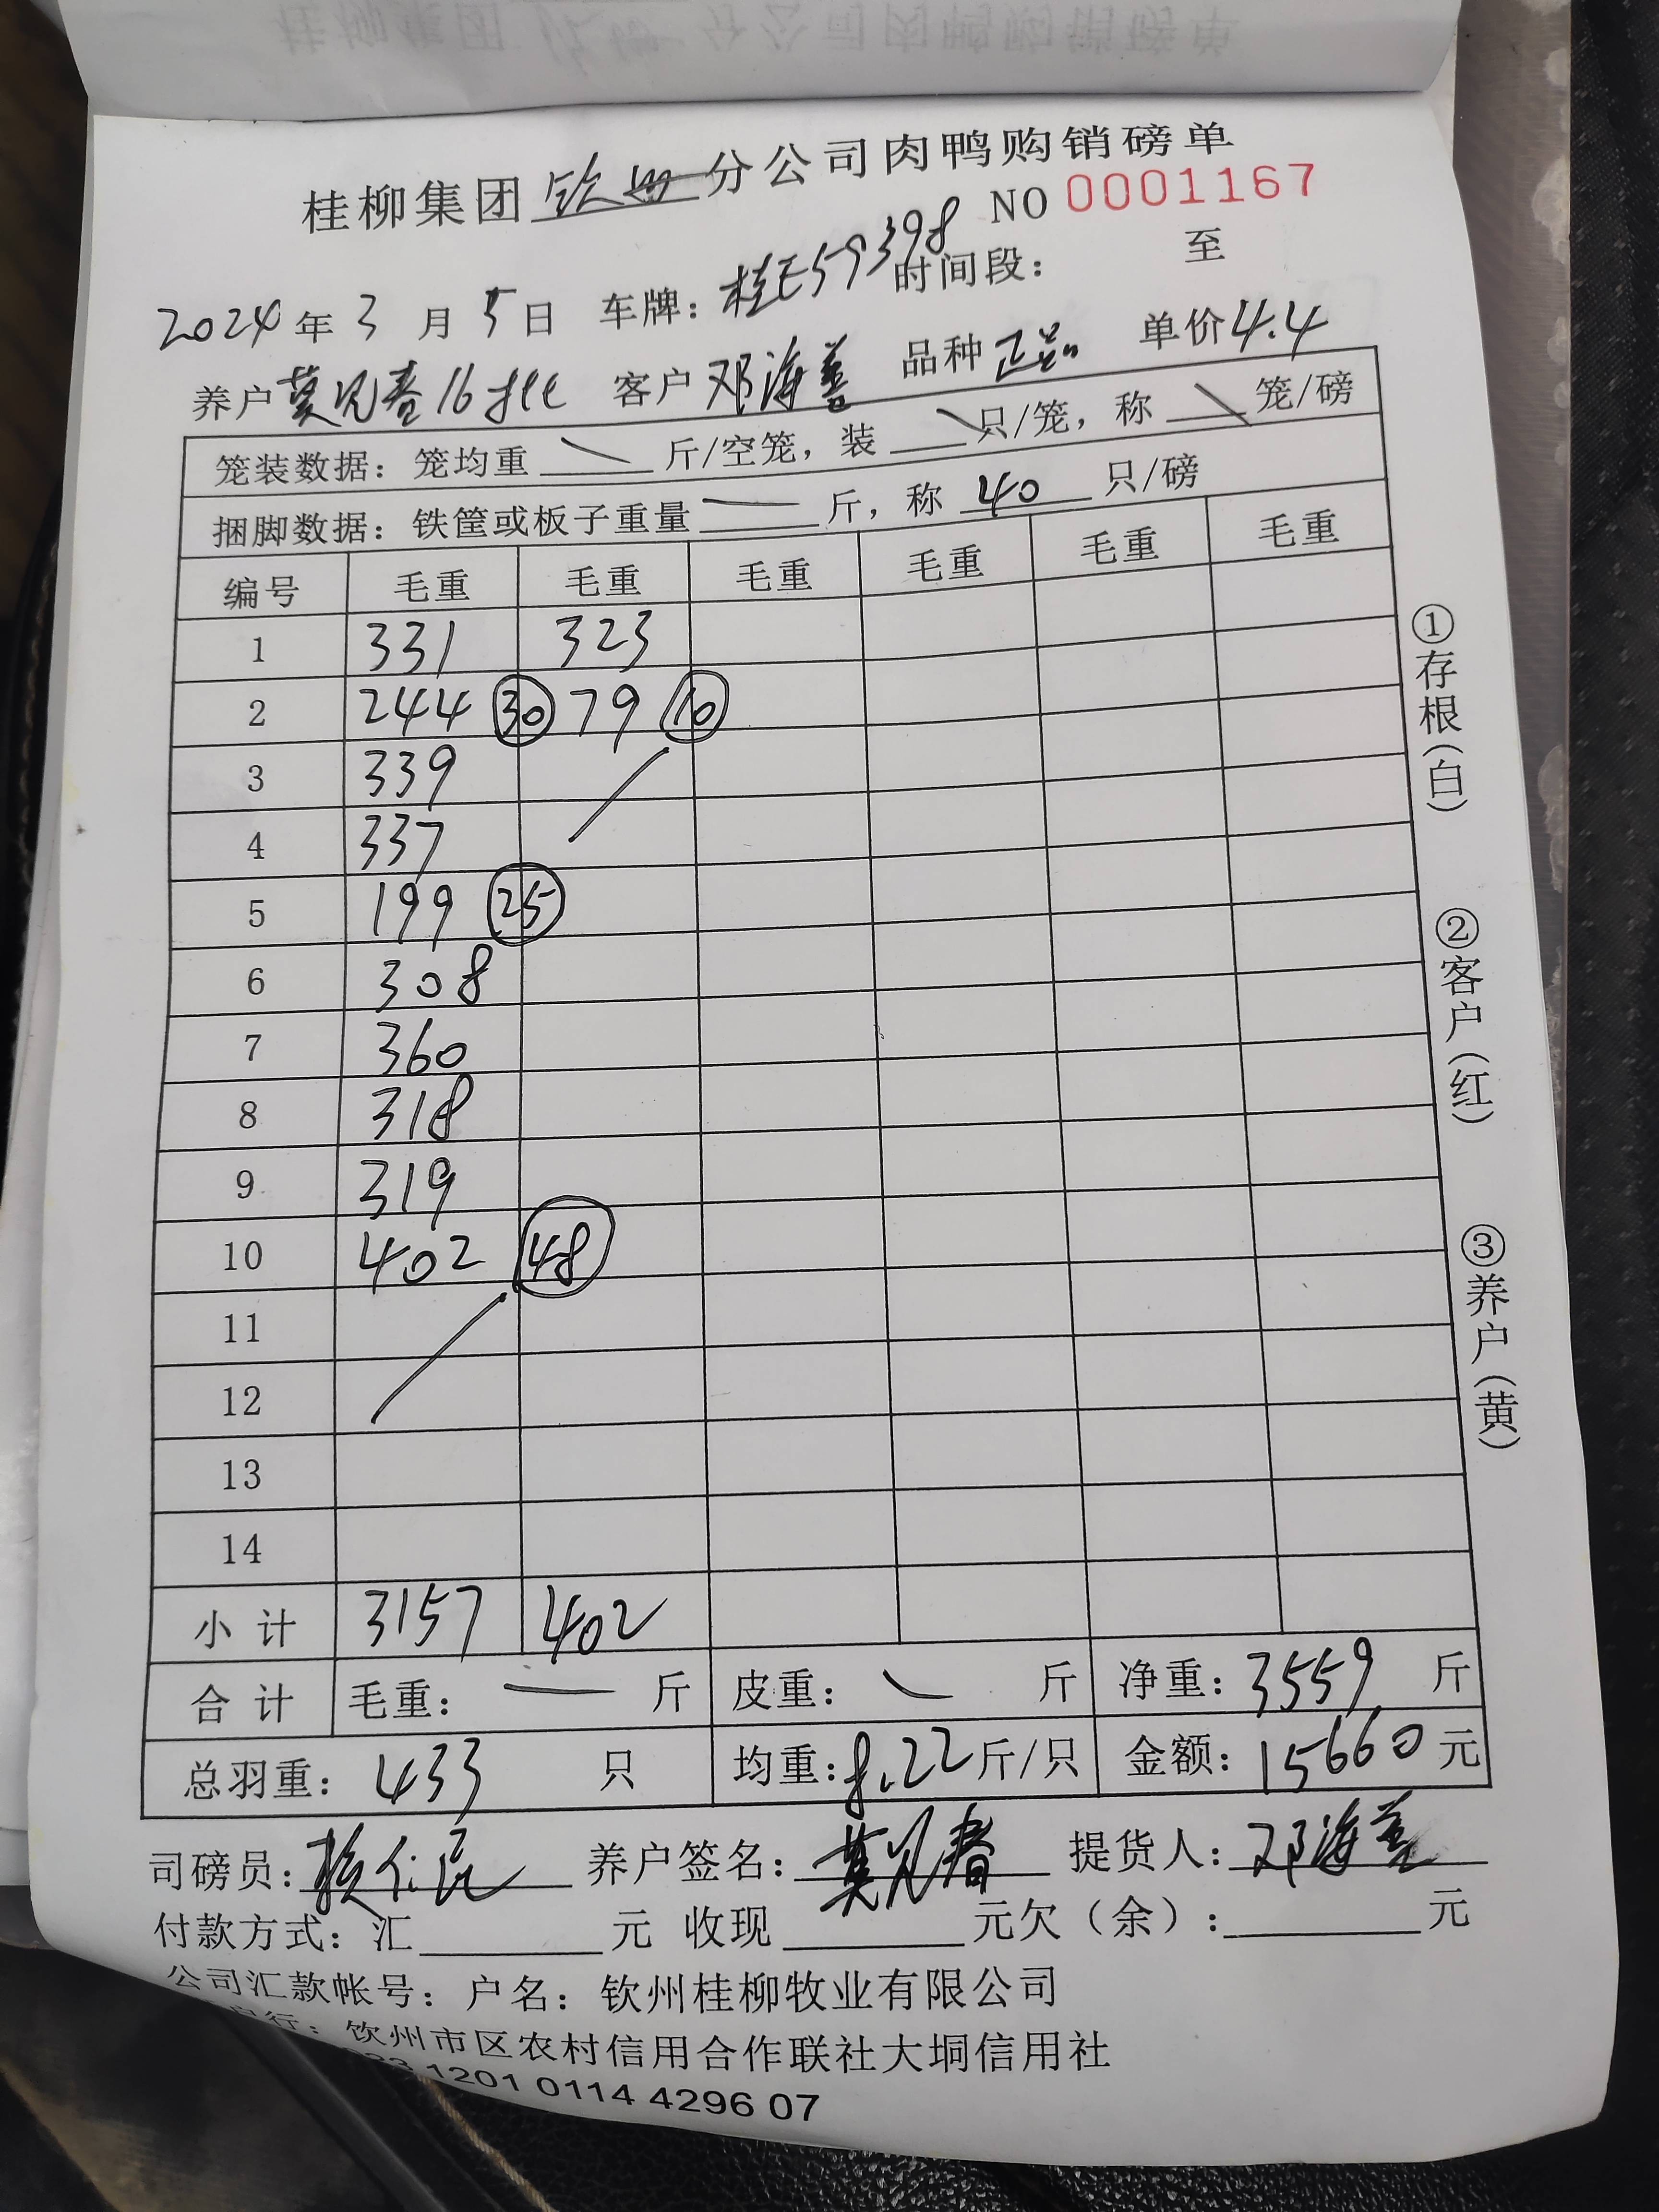 桂柳集团钦州分公司肉鸭购销磅单
NO 0001167
2024年3月5日 车牌：桂E59398 时间段： 至
养户莫兄春16批 客户邓海善 品种正品 单价4.4
笼装数据：笼均重 斤/空笼，装 只/笼，称 笼/磅
捆脚数据：铁筐或板子重量 斤，称 40 只/磅
编号 毛重 毛重 毛重 毛重 毛重 毛重
1 331 323
2 244 30 79 10
3 339
4 337
5 199 25
6 308
7 360
8 318
9 319
10 402 48
11
12
13
14
小计 3157 402
合计 毛重： 斤 皮重： 斤 净重：3559 斤
总羽重：433 只 均重：8.22斤/只 金额：15660元
司磅员： 养户签名：莫兄春 提货人：邓海善
付款方式：汇 元 收现 元欠（余）： 元
公司汇款帐号：户名：钦州桂柳牧业有限公司
行：钦州市区农村信用合作联社大垌信用社
1201 0114 4296 07
①存根（白）
②客户（红）
③养户（黄）